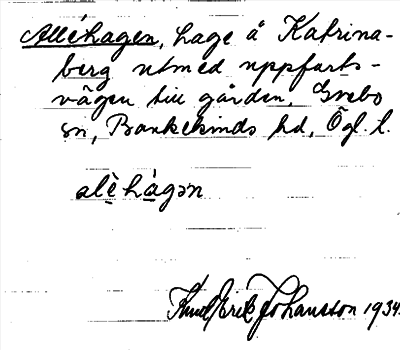 Alléhagen, hage å Katrina-
berg utmed uppfarts-
vägen till gården, Grebo
sn, Bankekinds hd, Ögl. l.
alèhàgən
Knut Erik Johansson 1934.